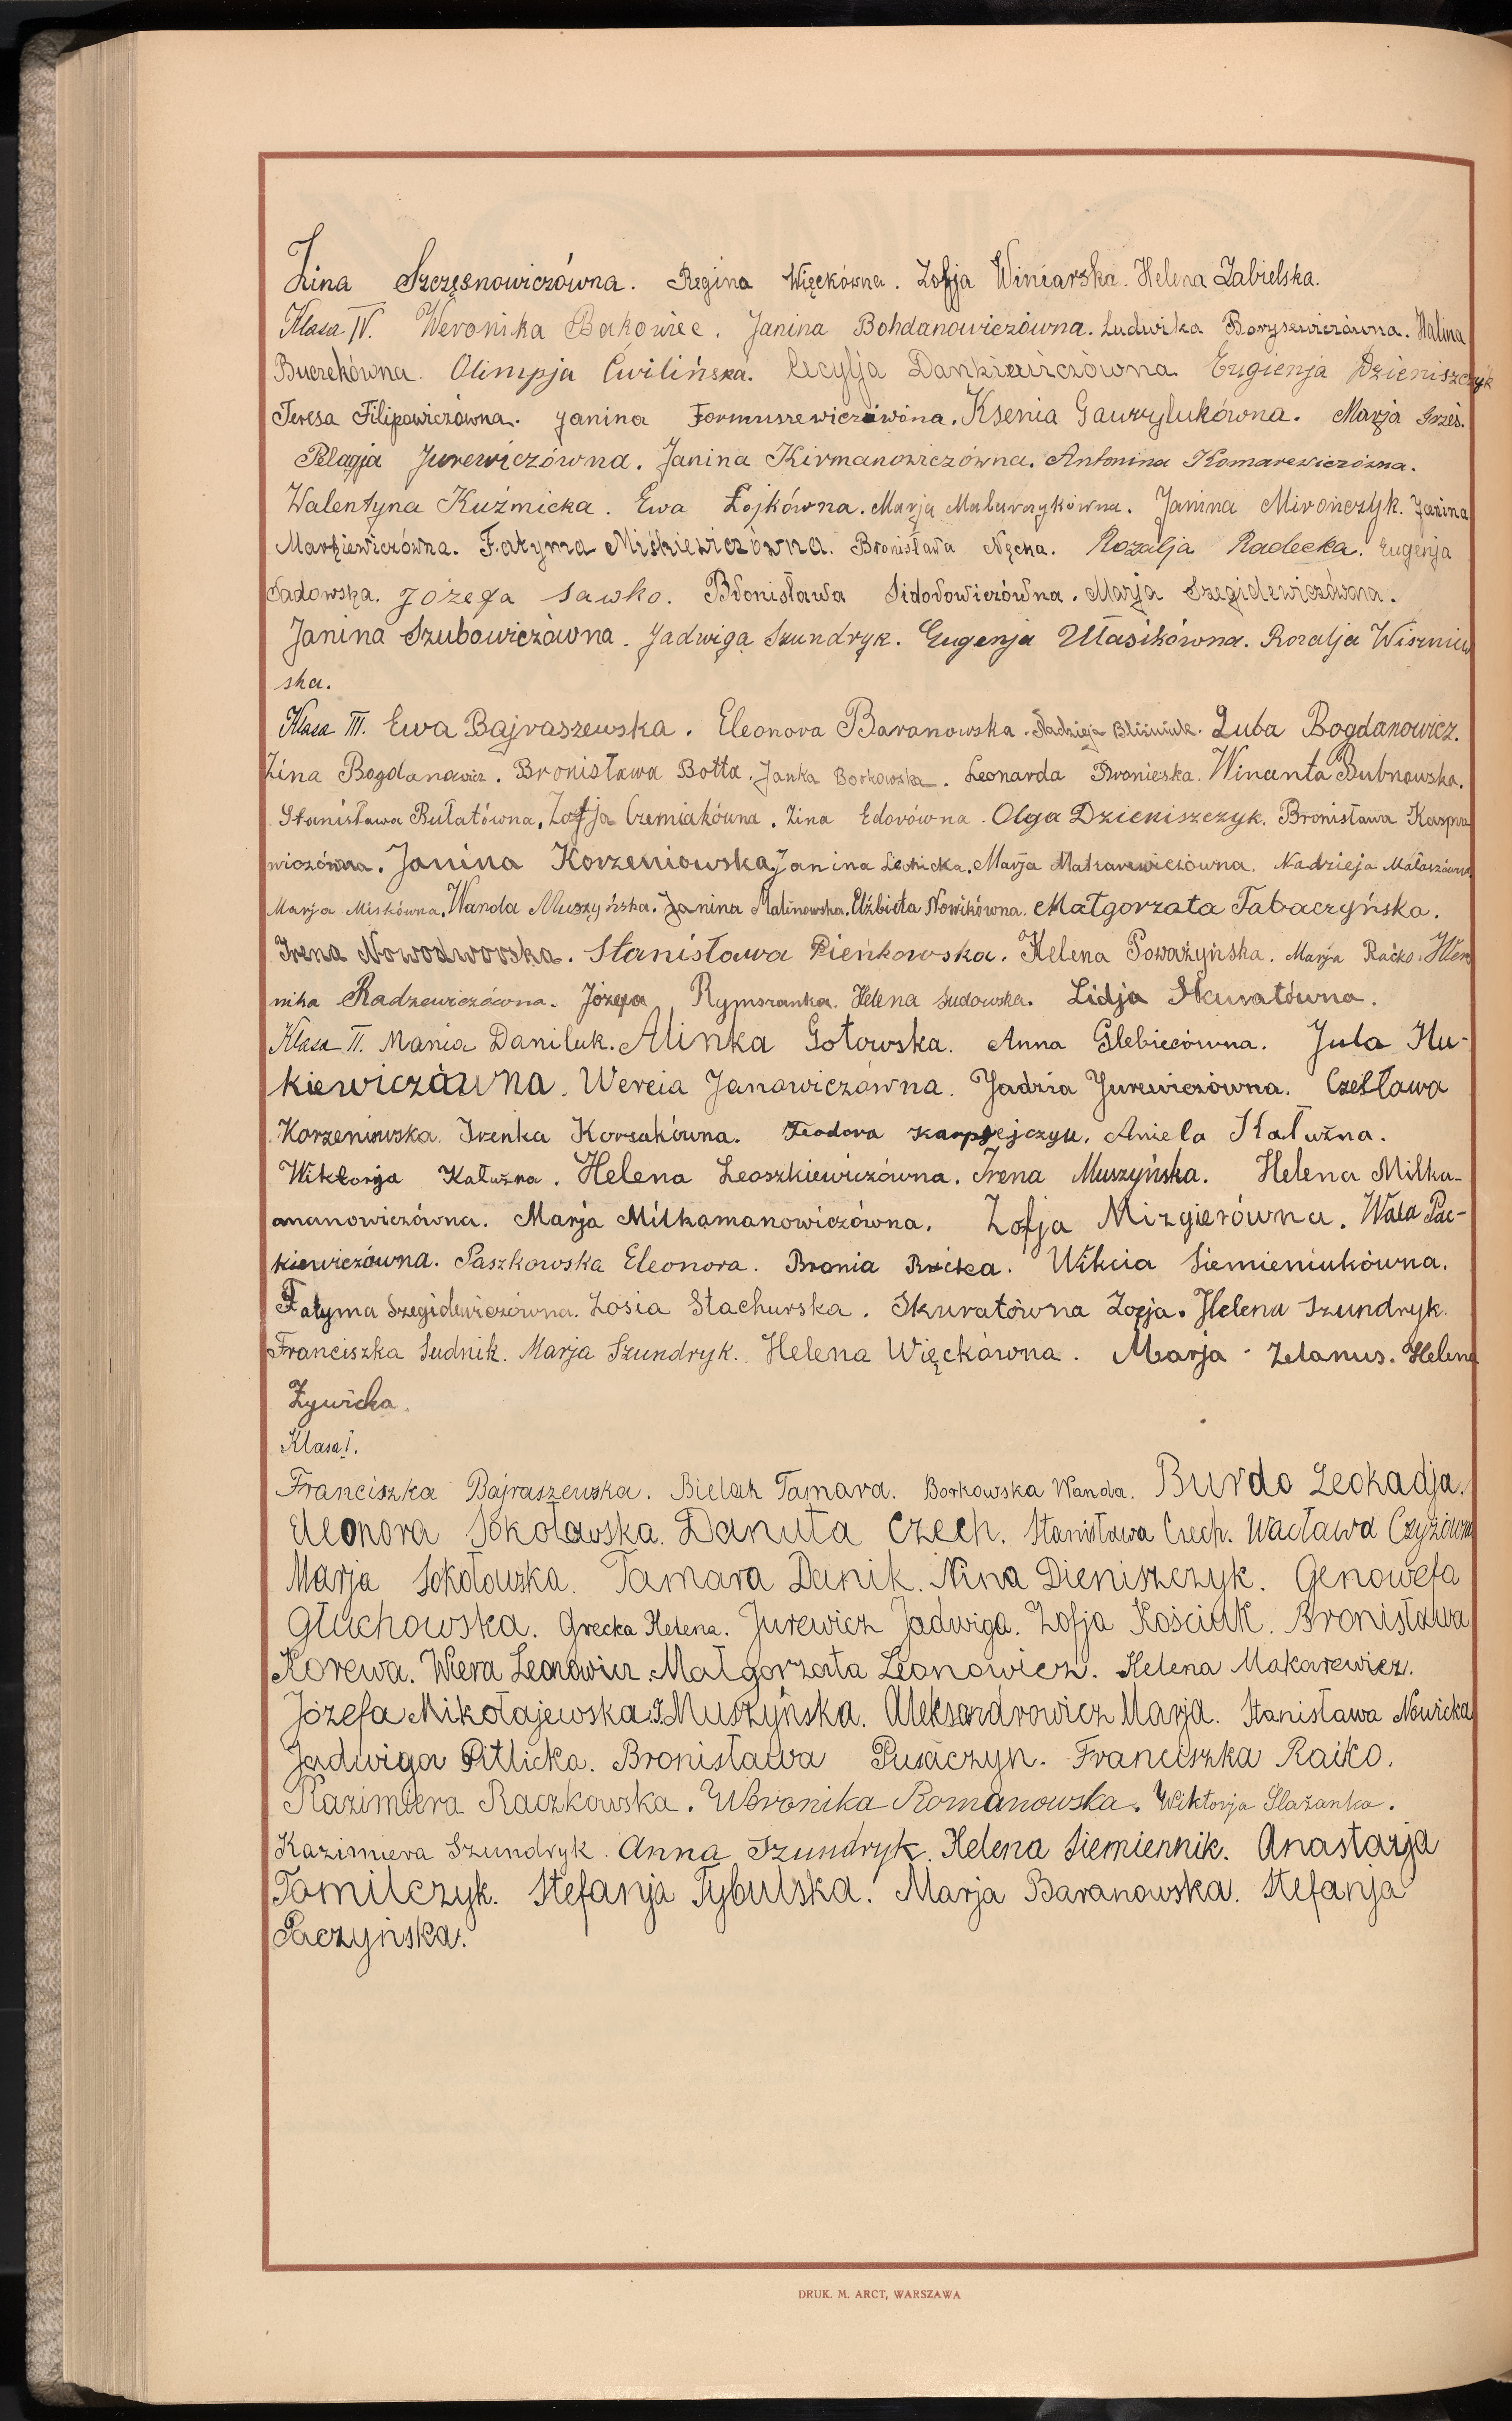 Zina Szczęsnowiczówna. Regina Więckówna. Zofja Winiarska. Helena Zabielska.
Klasa IV. Weronika Bakowiec. Janina Bohdanowiczówna. Ludwika Borysewiczówna. Halina
Buczekówna. Olimpja Ćwilińska. Cecylja Dankiewiczówna Eugienja Dzieniszczyk
Teresa Filipowiczówna. Janina Formuszewiczówna. Ksenia Gawrylukówna. Marja Grześ.
Pelagja Jurewiczówna. Janina Kirmanowiczówna. Antonina Komarewiczówna.
Walentyna Kuźmicka. Ewa Łojkówna. Marja Malarczykówna. Janina Mirończyk. Janina
Markiewiczówna. Fatyma Miśkiewiczówna. Bronisława Nęcka. Rozalja Radecka. Eugenja
Sadowska. Józefa Sawko. Bronisława Sidorowiczówna. Marja Szegidewiczówna.
Janina Szubowiczówna. Jadwiga Szundryk. Eugenja Ułasikówna. Rozalja Wiszniew
ska.
Klasa III. Ewa Bajraszewska. Eleonora Baranowska. Nadzieja Bliźniuk. Luba Bogdanowicz.
Zina Bogdanowicz. Bronisława Botta. Janka Borkowska. Leonarda Broniecka. Wincenta Bubnowska.
Stanisława Bułatówna. Zofja Czerniakówna. Zina Edorówna. Olga Dzieniszczyk. Bronisława Kaspro
wiczówna. Janina Korzeniowska. Janina Lesicka. Marja Makarewiczówna. Nadzieja Małaszówna
Marja Miśkówna. Wanda Muszyńska. Janina Malinowska. Elżbieta Nowikówna. Małgorzata Tabaczyńska.
Irena Nowodworska. Stanisława Pieńkowska. Helena Poważyńska. Marja Raćko. Wero
nika Radzewiczówna. Józefa Rymszanka. Helena Sudowska. Lidja Skuratówna.
Klasa II. Mania Daniluk. Alinka Gołowska. Anna Glebiecówna. Jula Hu-
kiewiczówna. Wercia Janowiczówna. Jadzia Jurewiczówna. Czesława
Korzeniowska. Irenka Korsakówna. Teodora Karpiejczyk. Aniela Kałużna.
Wiktorja Kałużna. Helena Leoszkiewiczówna. Irena Muszyńska. Helena Milka-
manowiczówna. Marja Milkamanowiczówna. Zofja Mizgierówna. Wala Pac-
kiewiczówna. Paszkowska Eleonora. Bronia Rećka. Wikcia Siemieniukówna.
Fatyma Szegidewiczówna. Zosia Stachurska. Skuratówna Zofja. Helena Szundryk.
Franciszka Sudnik. Marja Szundryk. Helena Więckówna. Marja Zelanus. Helena
Żywicka.
Klasa I.
Franciszka Bajraszewska. Bielak Tamara. Borkowska Wanda. Burdo Leokadja.
Eleonora Sokołowska. Danuta Czech. Stanisława Czech. Wacława Czyżówna
Marja Sokołowska. Tamara Danik. Nina Dieniszczyk. Genowefa
Głuchowska. Grecka Helena. Jurewicz Jadwiga. Zofja Kościuk. Bronisława
Korewa. Wiera Leonowicz. Małgorzata Leonowicz. Helena Makarewicz.
Józefa Mikołajewska. J. Muszyńska. Aleksandrowicz Marja. Stanisława Nowicka
Jadwiga Pitlicka. Bronisława Pusaczyn. Franciszka Raiko.
Kazimiera Raczkowska. Weronika Romanowska. Wiktorja Ślażanka.
Kazimiera Szundryk. Anna Szundryk. Helena Siemiennik. Anastazja
Tomilczyk. Stefanja Tybulska. Marja Baranowska. Stefanja
Paczyńska.
DRUK. M. ARCT, WARSZAWA